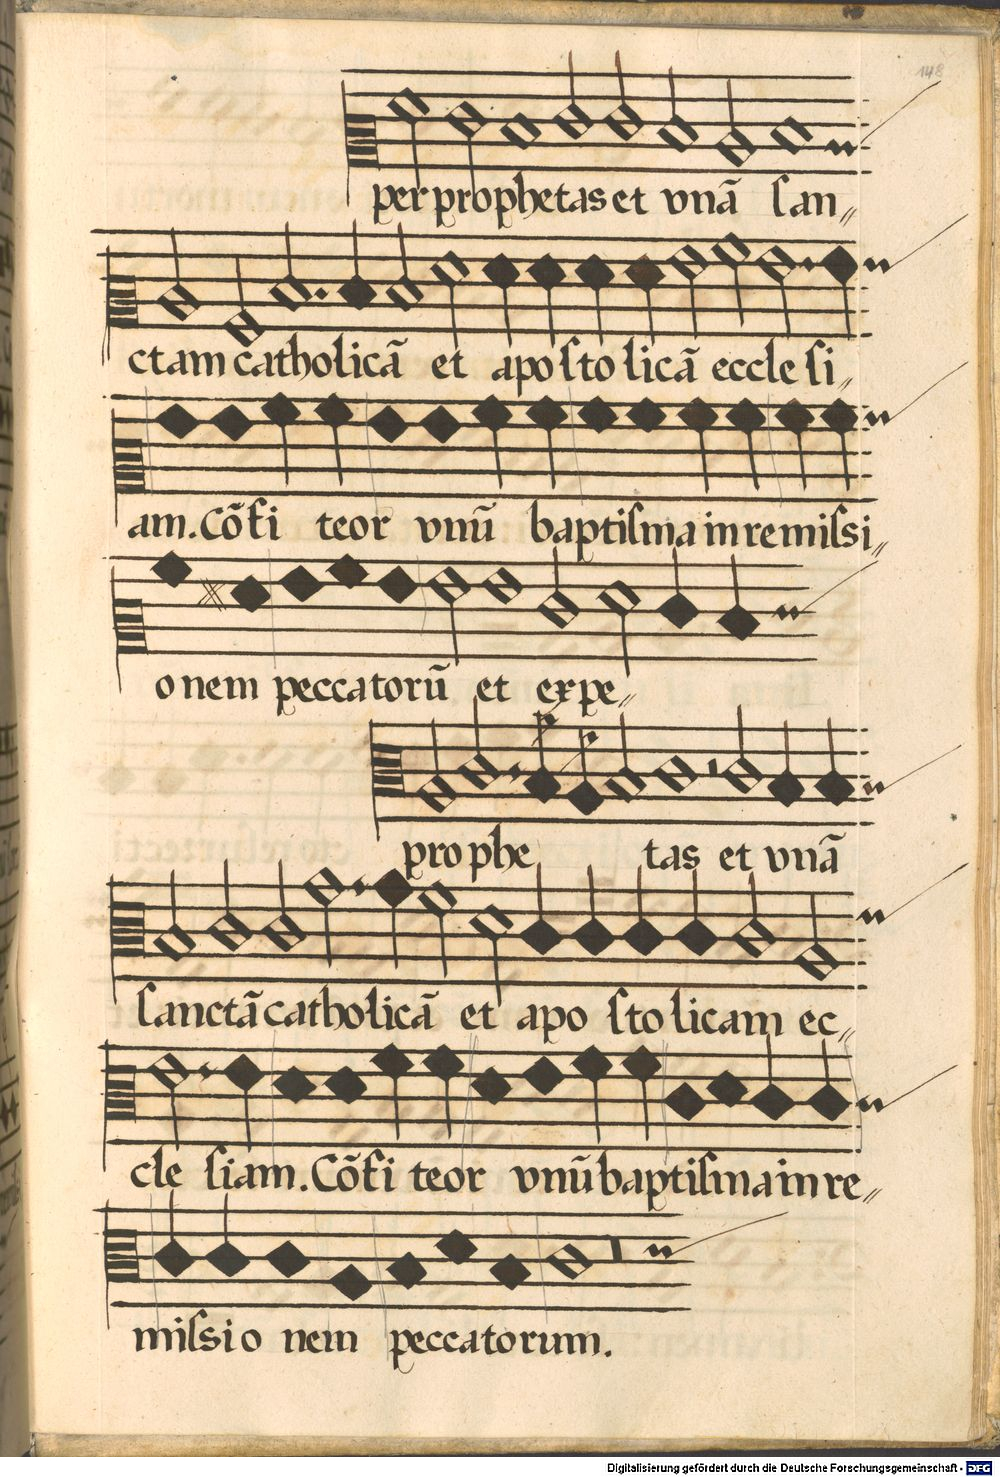 148
per prophetas et vnā ſan〃
ctam catholicā et apo ſto licā eccle ſi〃
am. Cōfi teor vnū baptiſma in remiſsi〃
onem peccatorū et expe〃
prophe tas et vnā
ſanctā catholicā et apo ſto licam ec〃
cle ſiam. Cōfi teor vnū baptiſma in re〃
miſsio nem peccatorum.
Digitalisierung gefördert durch die Deutsche Forschungsgemeinschaft - DFG